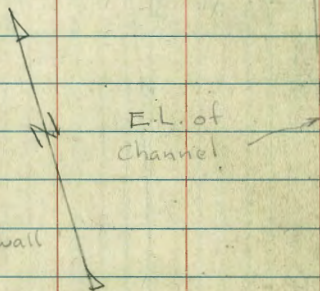 N
E.L. of
Channel
wall